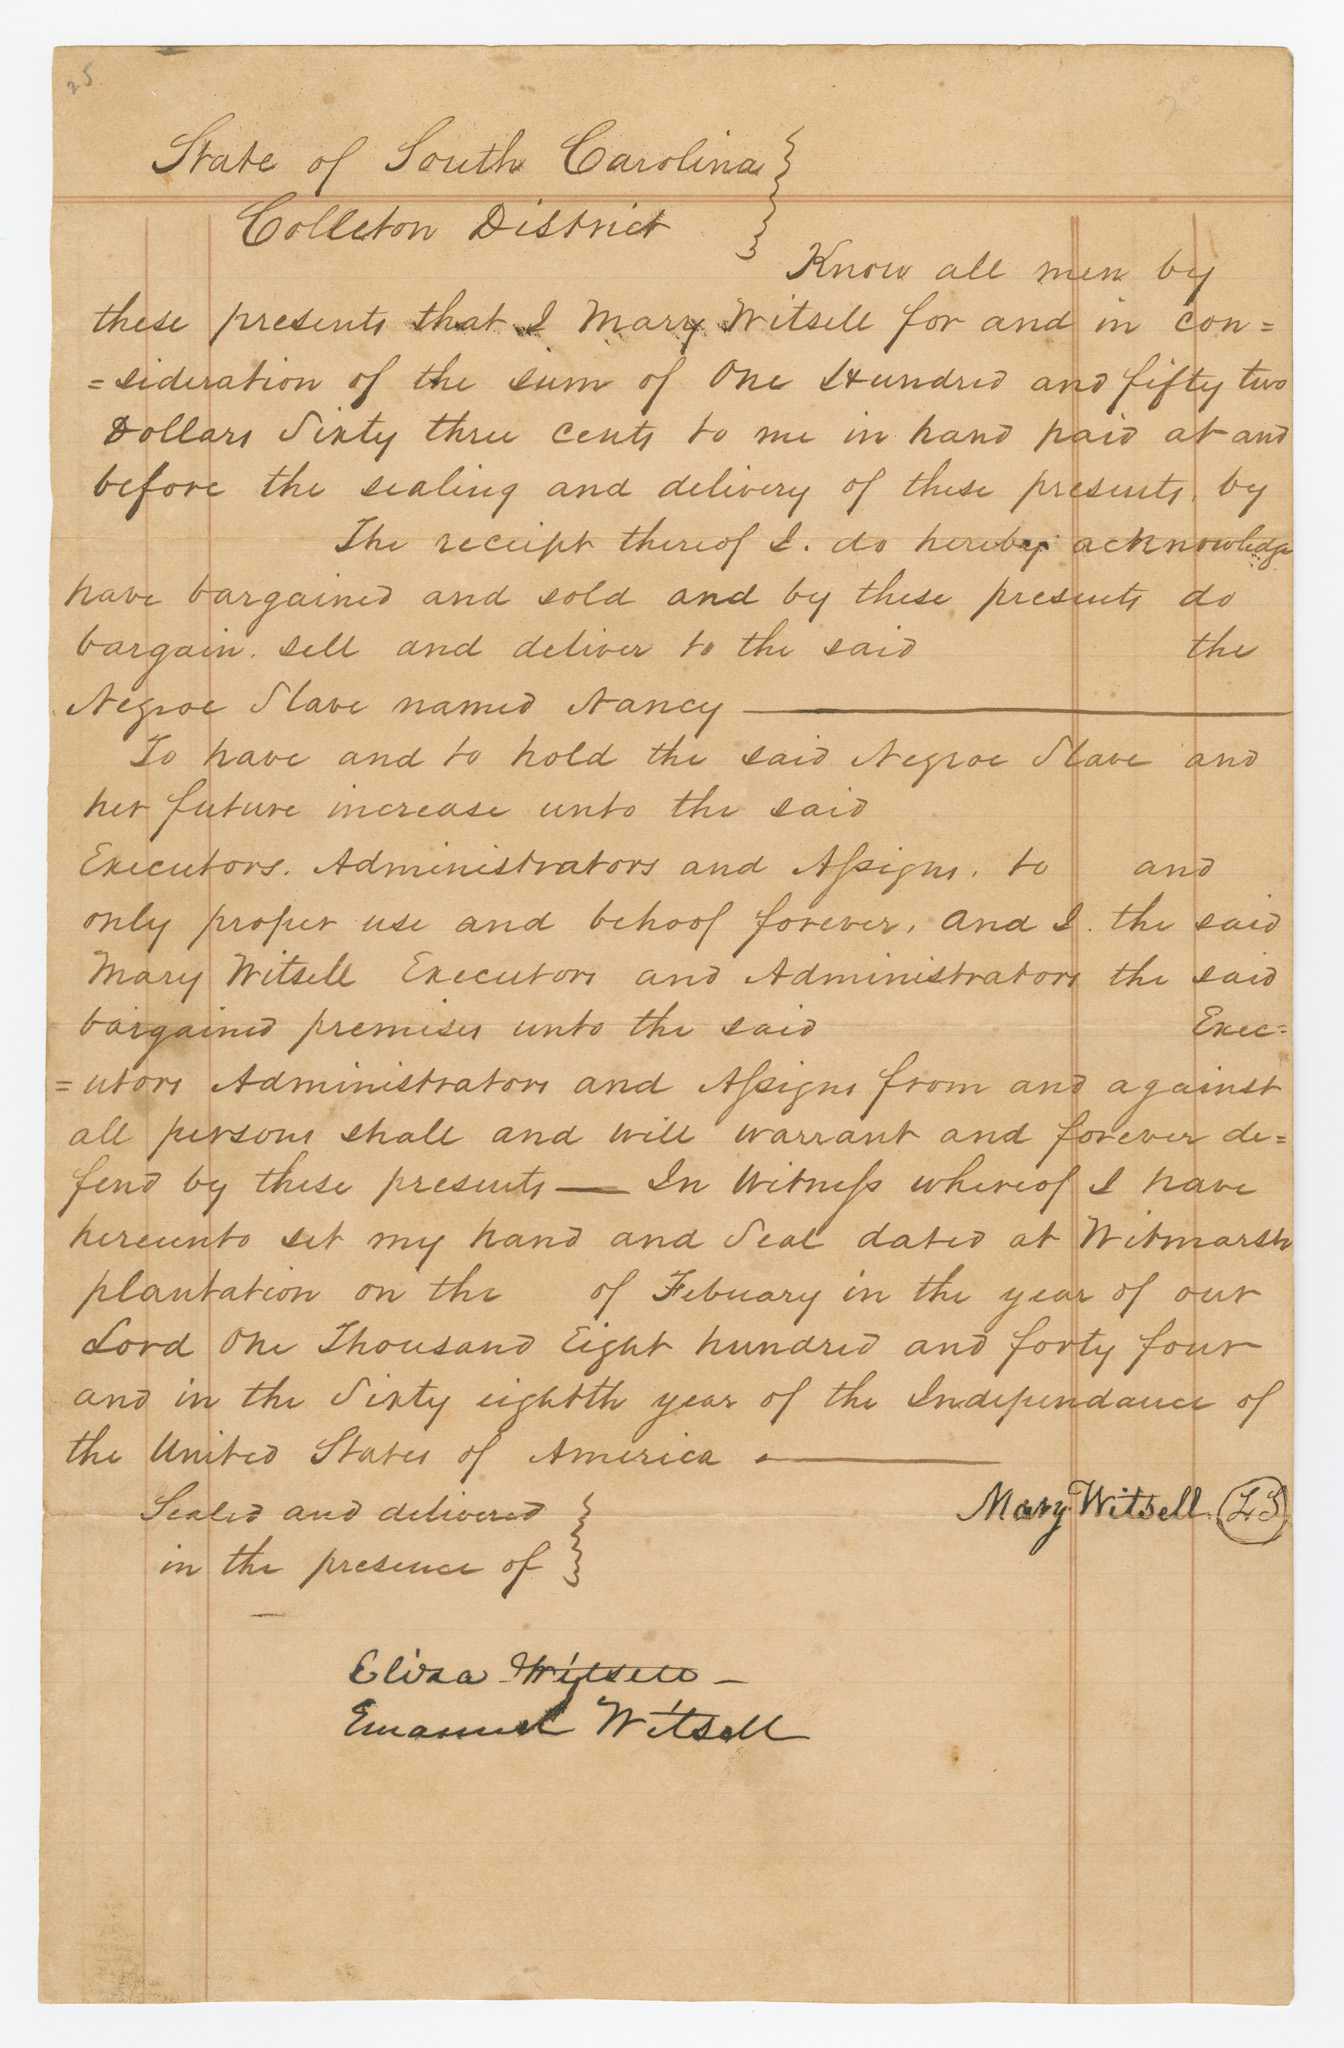 25
State of South Carolina
Colleton District
Know all men by
these presents that I Mary Witsell for and in con=
=sideration of the sum of One Hundred and fifty two
Dollars Sixty three cents to me in hand paid at and
before the sealing and delivery of these presents. by
The receipt thereof I. do hereby acknowledge
have bargained and sold and by these presents do
bargain. sell and deliver to the said the
Negroe Slave named Nancy
To have and to hold the said Negroe Slave and
her future increase unto the said
Executors. Administrators and Assigns. to and
only proper use and behoof forever, and I. the said
Mary Witsell Executors and Administrators the said
bargained premises unto the said Exec=
=utors Administrators and Assigns from and against
all persons shall and will warrant and forever de=
fend by these presents — In Witness whereof I have
hereunto set my hand and Seal dated at Witmarsh
plantation on the of Febuary in the year of our
Lord One Thousand Eight hundred and forty four
and in the Sixty eightth year of the Independance of
the United States of America
Mary Witsell. LS
Sealed and delivered
in the presence of
Eliza Witsell —
Emanuel Witsell